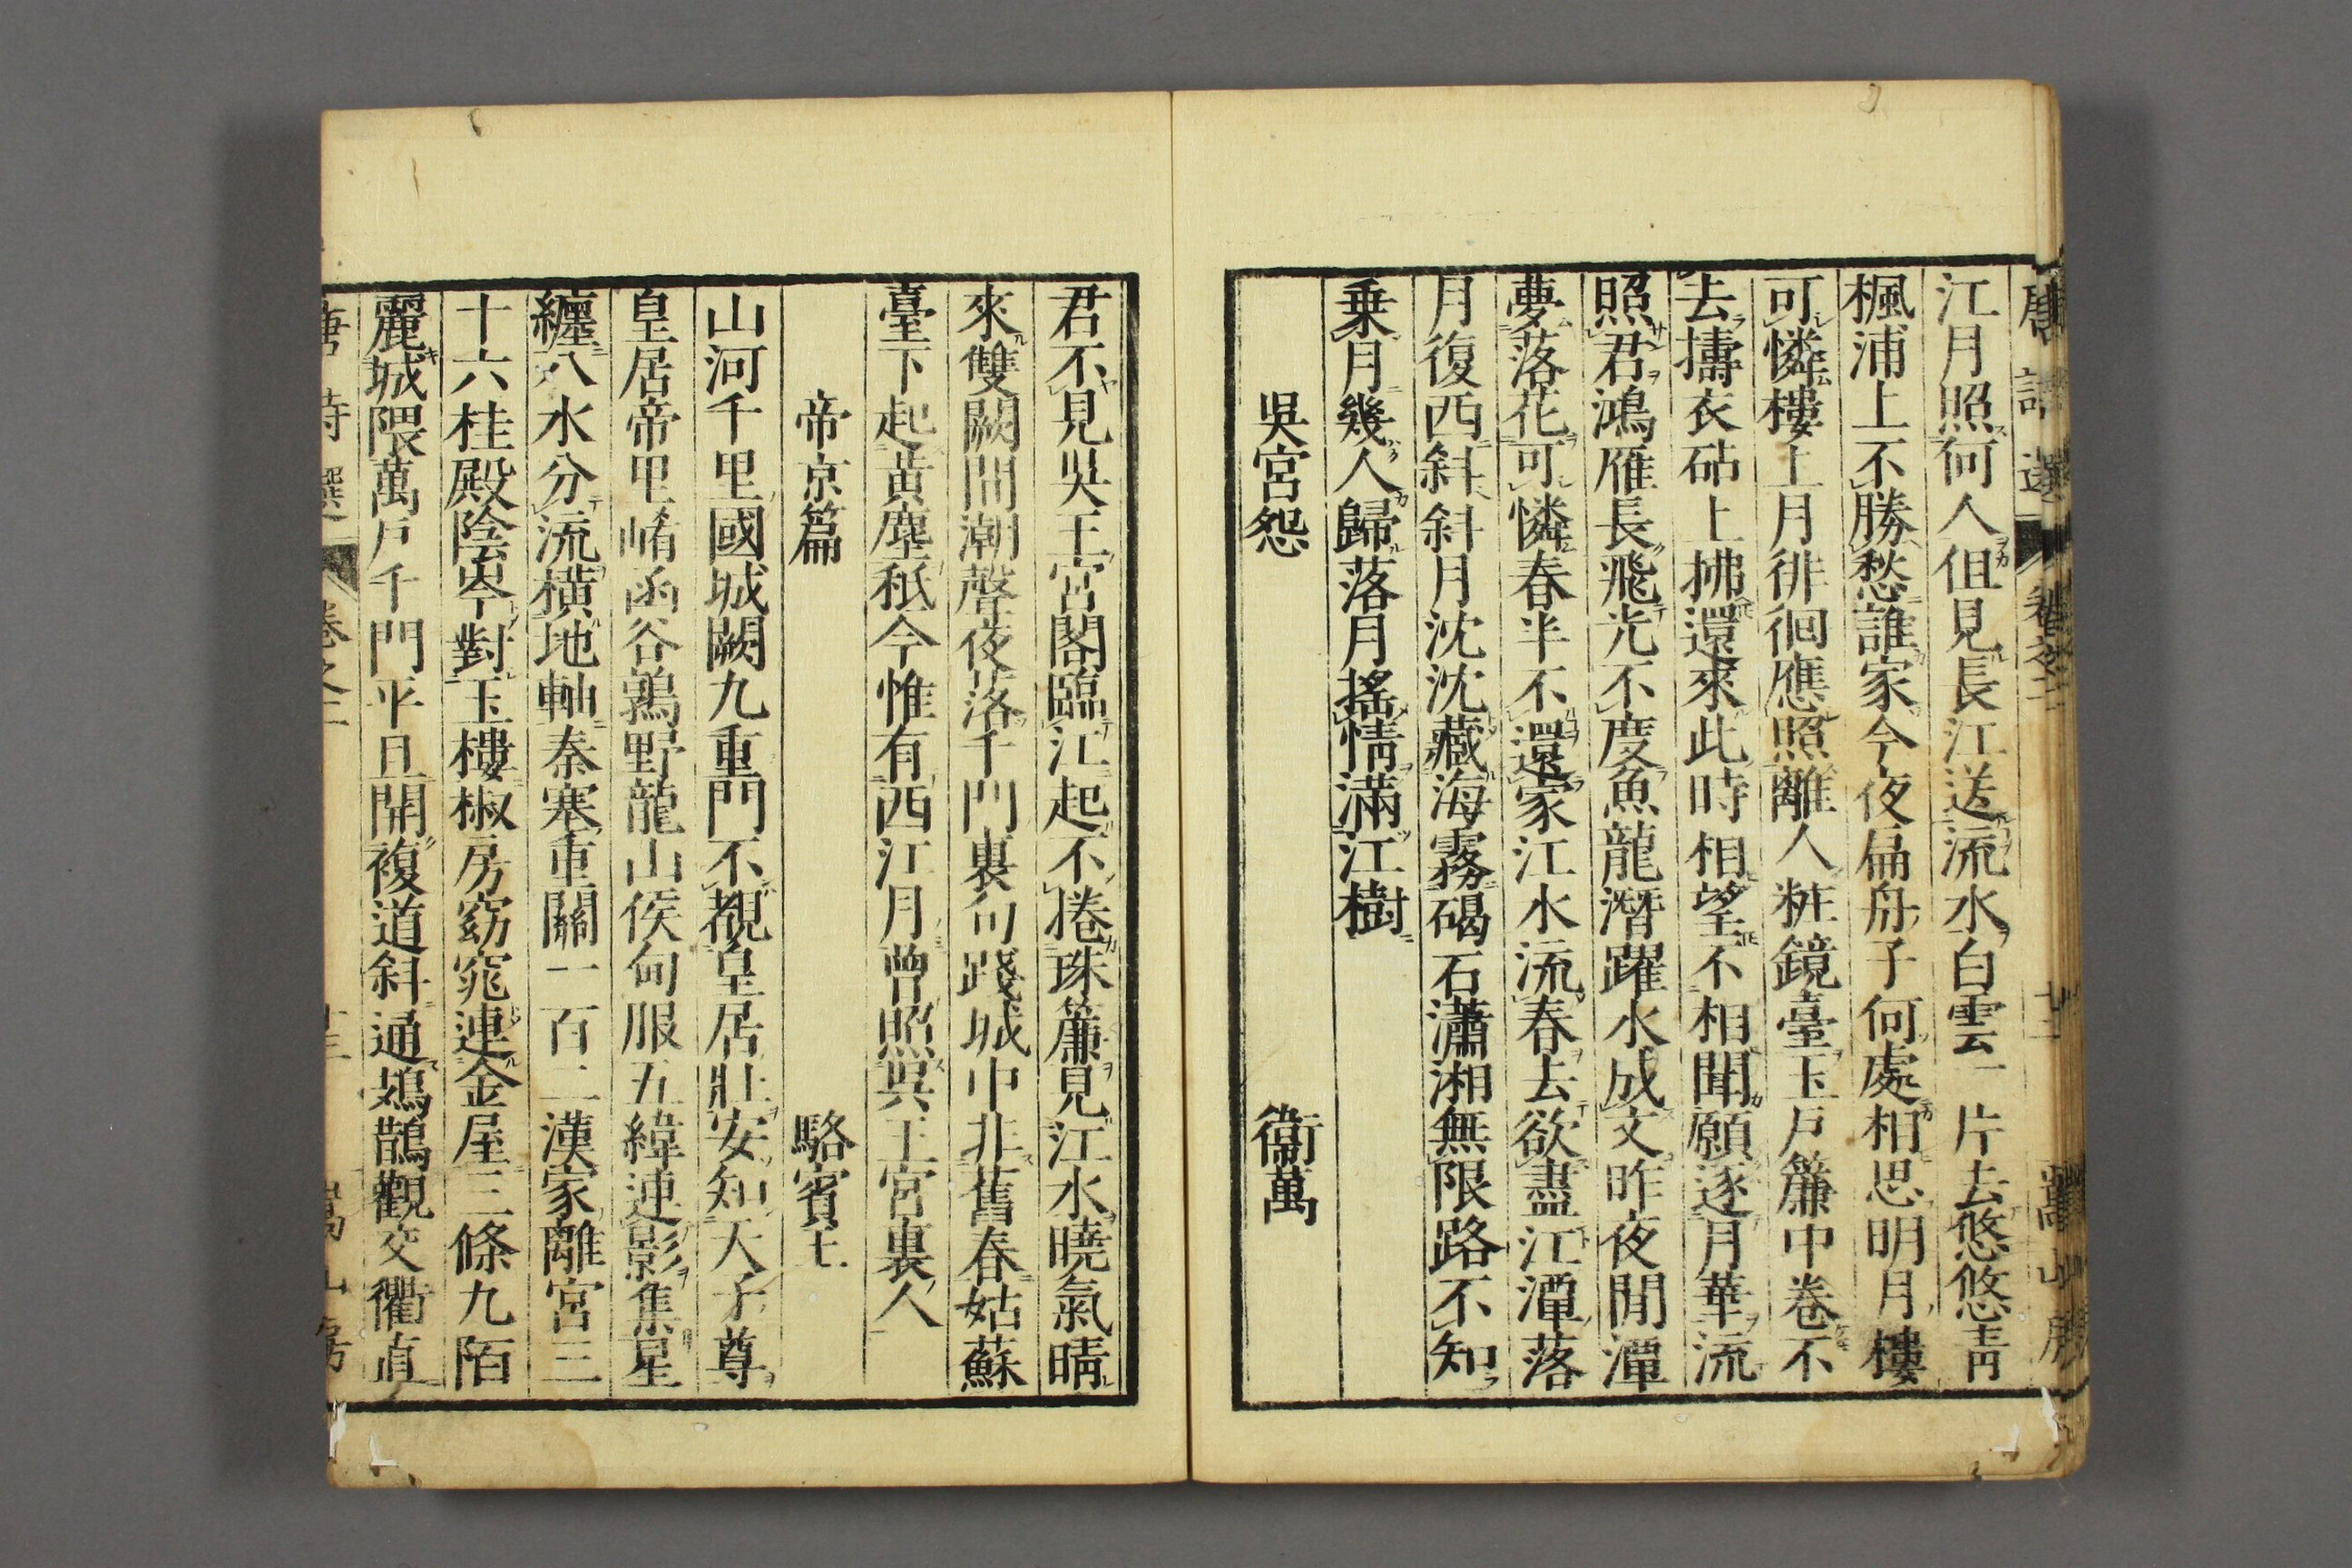 唐詩選 卷之二 十二 嵩山房
江月照何人但見長江送流水白雲一片去悠悠青
楓浦上不勝愁誰家今夜扁舟子何處相思明月樓
可憐樓上月徘徊應照離人粧鏡臺玉戸簾中卷不
去擣衣砧上拂還來此時相望不相聞願逐月華流
照君鴻雁長飛光不度魚龍潛躍水成文昨夜閒潭
夢落花可憐春半不還家江水流春去欲盡江潭落
月復西斜斜月沈沈藏海霧碣石瀟湘無限路不知
乗月幾人歸落月搖情滿江樹
吳宮怨 衞萬
君不見吳王宮閣臨江起不捲珠簾見江水曉氣晴
來雙闕間潮聲夜落千門裏句踐城中非舊春姑蘇
臺下起黃塵秪今惟有西江月曾照吳王宮裏人
帝京篇 駱賓王
山河千里國城闕九重門不覩皇居壯安知天子尊
皇居帝里崤函谷鶉野龍山侯甸服五緯連影集星
纏八水分流橫地軸秦塞重關一百二漢家離宮三
十六桂殿陰岑對玉樓椒房窈窕連金屋三條九陌
麗城隈萬戸千門平旦開複道斜通鳷鵲觀交衢直
唐詩選 卷之二 十三 嵩山房